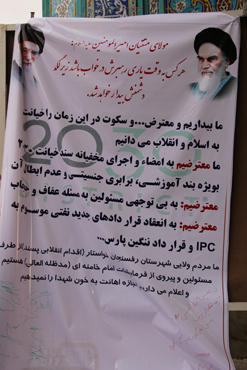 مولای متقیان امیرالمومنین
هر کس به وقت یاری رهبرش در خواب باشد زیر لگد
دشمنش بیدار خواهد شد.
ما بیداریم و معترض...و سکوت در این زمان را خیانت
به اسلام و انقلاب می دانیم
ما معترضیم به امضاء و اجرای مخفیانه سند خیانت ۲۰۳۰
بویژه بند آموزشی، برابری جنسیتی و عدم ابطال آن
معترضیم: به بی توجهی مسئولین به مسئله عفاف و حجاب
معترضیم: به انعقاد قرار دادهای جدید نفتی موسوم به
IPC و قرار داد ننگین پارس...
ما مردم ولایی شهرستان رفسنجان خواستار (اقدام انقلابی پسند) از طرف
مسئولین و پیروی از فرمایشات امام خامنه ای (مدظله العالی) هستیم
و اعلام می داریم اجازه اهانت به خون شهدا را نمیدهیم
2030